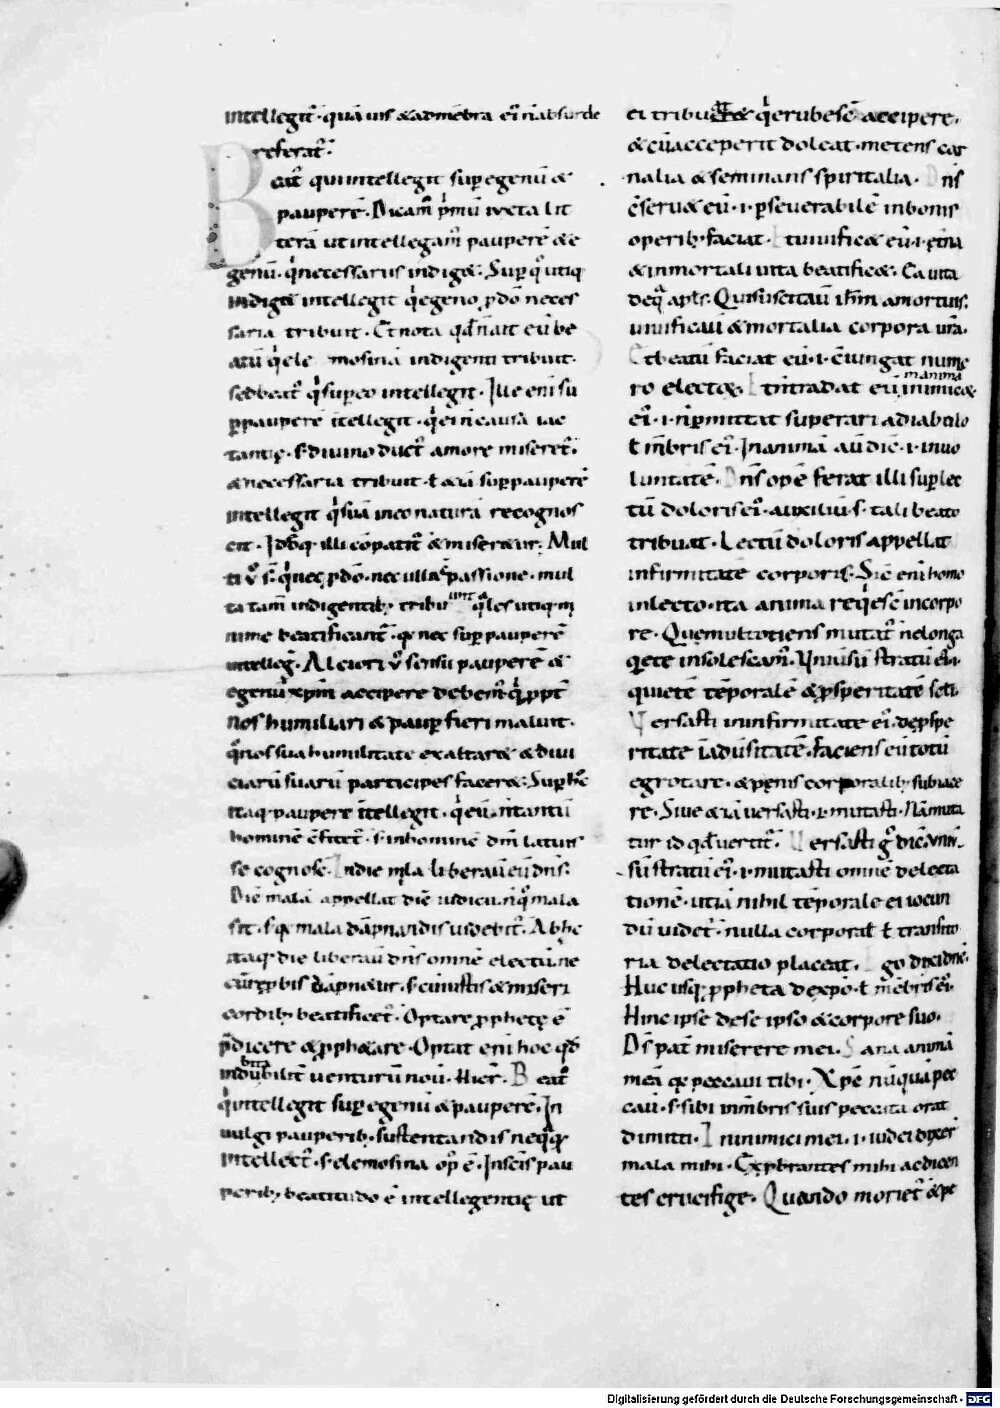 intellegit᷑ · quā uis &admēbra ei᷒ ñabsurde
referat᷑.
Beat᷒ qui intellegit sup egenū &
pauperē. Dicam᷒ p̄mū iuxta lit
terā ut intellegam᷒ pauperē & e
genū. q̇ necessariis indig&. Sup q̊ utiq
indig& intellegit q̇ egeno, p dō neces
saria tribuit. Et nota qd̄ ñ ait eū be
atū q̇ ele mosinā indigenti tribuit.
sed beat᷒ q̇ sup eo intellegit. Ille eni su
p pauperē ītellegit · q̇ ei ñ causa iac
tantię · s; diuino duct᷒ amore miseret᷑.
& necessaria tribuit · ł &iā sup pauperē
intellegit q̇ suā in eo naturā recognos
cit. Idōq; illi cōpatit᷑ & miser&ur. Mul
ti v̊ s̄ · q̇ nec p dō · nec ulla cpassione · mul
ta tam̄ indigentib; tribuunt · q̄les utiq; mi
nime beatificant᷑ · q̄ nec sup pauperē
intelleg̃. Alciori v̊ sensu pauperē &
egenū xp̄m accipere debem᷒ · q̇ ppt̄
nos humiliari & paup fieri maluit.
q̊ nos sua humilitate exaltar& & diui
ciarū suarū participes facer&. Sup hc̄
itaq; pauperē ītellegit · q̇ eū ñ tantū
hominē cfitet᷑ · s; in homine dm̄ latuis
se cognosc̄. In die mala liberauit eū dns̄.
Diē malā appellat diē iudicii. ñ q̊ mala
sit · s; q̄ mala dāpnandis uidebit᷑. Ab hc
itaq; die liberauit dns̄ omnē electū. ne
cū rep̄bis dāpn&ur · s; cū iustis & miseri
cordib; beatificet᷑. Optare pphetę ē
p̄dicere & pph&are. Optat eni hoc qd̄
indubitabilit̄ uenturū nouit. Hier᷒. Beat᷒
q̇ intellegit sup egenū & pauperē. In
uulgi pauperib; sustentandis neq̄q̄
intellect᷒ · s; elemosina op᷒ ē. In sc̄is pau
perib; beatitudo ē intellegentię ut
ei tribuat & q̇ erubesc̄ accipere.
& cū acceperit doleat · metens car
nalia & seminans spiritalia. Dns̄
cseru& eū · i · pseuerabilē in bonis
operib; faciat. Et uiuific& eū · i · et̄na
& inmortali uita beatific&. Ea uita
de q̄ apl̄s. Qui suscitauit ihm̄ a mortuis.
uiuificauit & mortalia corpora ur̄a.
Et beatū faciat eū · i · ciungat nume
ro elect&. Et ñ tradat eū in manimica
ei᷒ · i · ñ pmittat superari a diabolo
ł mb̄ris ei᷒. In animā aut̄ dic̄ · i · in uo
luntatē. Dns̄ opē ferat illi sup lec
tū doloris ei᷒ · auxiliū · s · tali beato
tribuat. Lectū doloris appellat
infirmitatē corporis. Sic̄ eni homo
in lecto · ita anima req̇esc̄ in corpo
re. Quē multotiens mutat᷑ ne longa
q̇ete insolescam᷒. Vniuersū stratū ei᷒
quietē tēporalē & psperitatē scli
Uersasti in infirmitate ei᷒. de pspe
ritate ī aduersitatē. faciens eū totū
egrotare · & penis corporalib; subiace
re. Siue &iā uersasti · i · mutasti. Nā muta
tur id qd̄ uertit᷑. Uersasti g̊ dic · uniuer
sū stratū ei᷒ · i · mutasti omnē delecta
tionē · ut iā nihil tēporale ei iocun
dū uidet᷑ · nulla corporał ł transito
ria delectatio placeat. Ego dixi dne̅.
Huc usq; ppheta de xp̄o · ł mēbris ei᷒.
Hinc ipse de se ipso & corpore suo.
Ds̄ pat̄ miserere mei. Sana animā
meā q̄ peccaui tibi. Xp̄c nūquā pec
cauit · s; sibi in mb̄ris suis peccata orat
dimitti. Inimici mei · i · iudei dixer̄
mala mihi. Expbrantes mihi ac dicen
tes crucifige. Quando moriet᷑ & pe
Digitalisierung gefördert durch die Deutsche Forschungsgemeinschaft - DFG